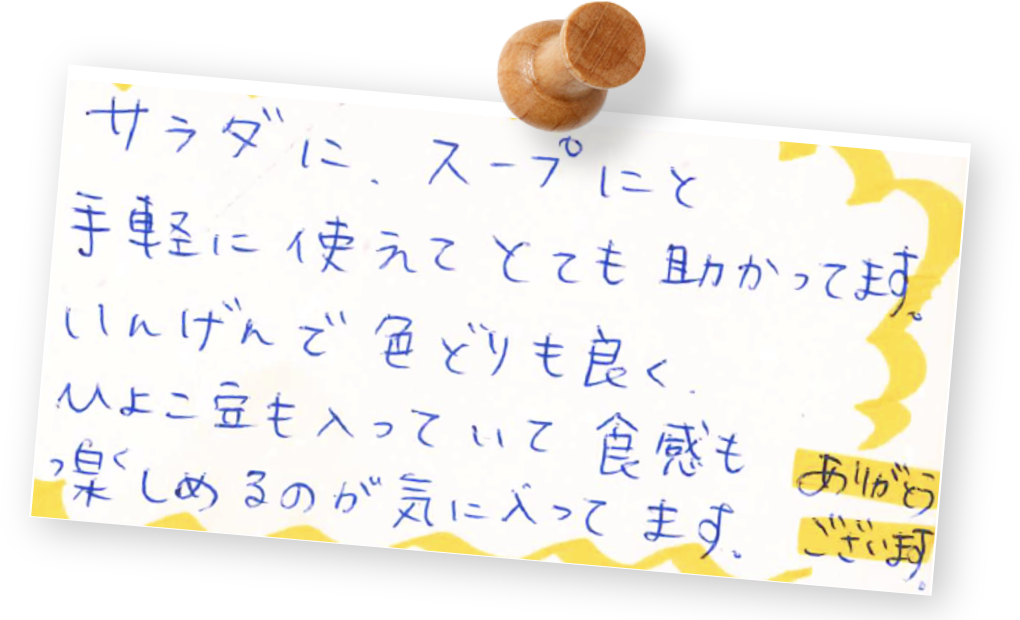 サラダに、スープにと
手軽に使えてとても助かってます。
いんげんで色どりも良く、
ひよこ豆も入っていて食感も
楽しめるのが気に入ってます。
ありがとう
ございます。